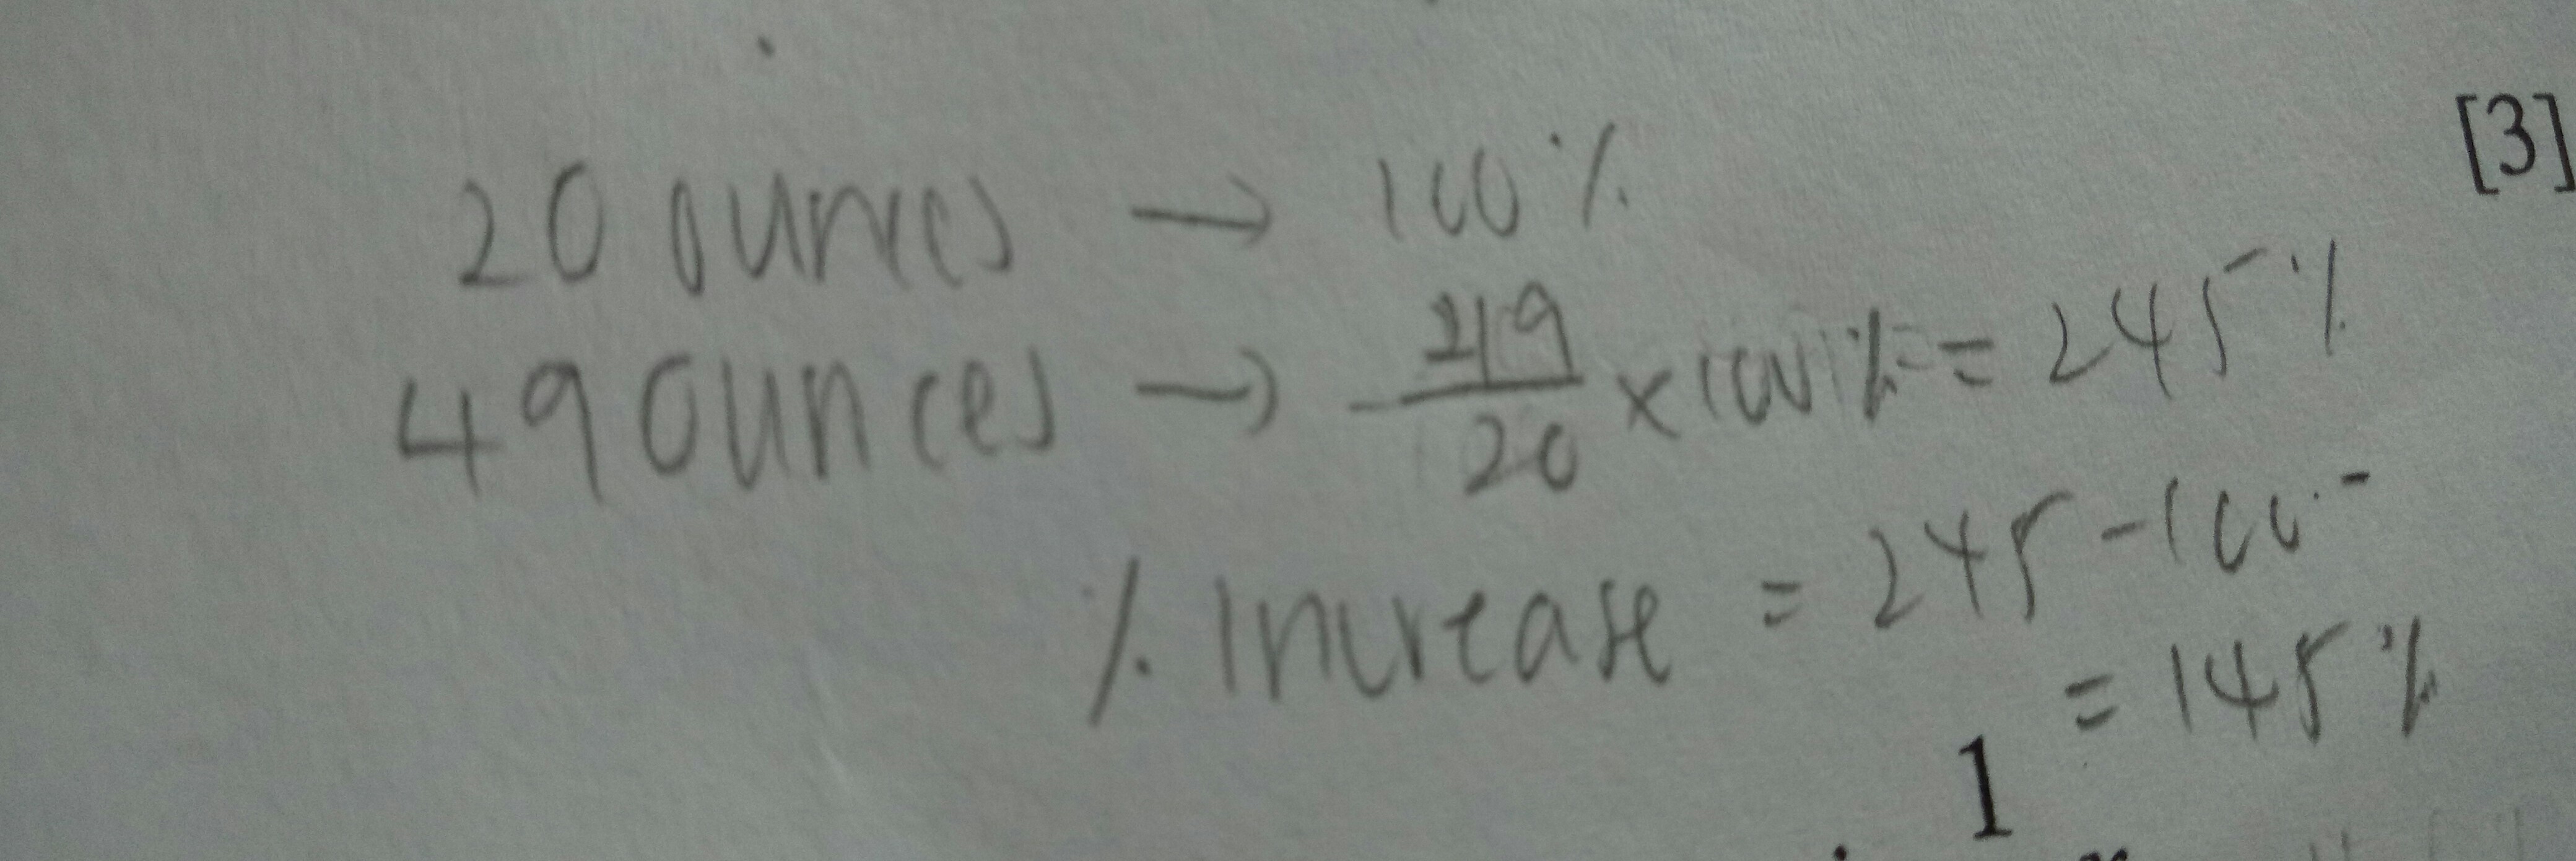 [3]
20 ounces → 100%
49 ounces → 49/20 × 100% = 245%
% Increase = 245 - 100
= 145%
1